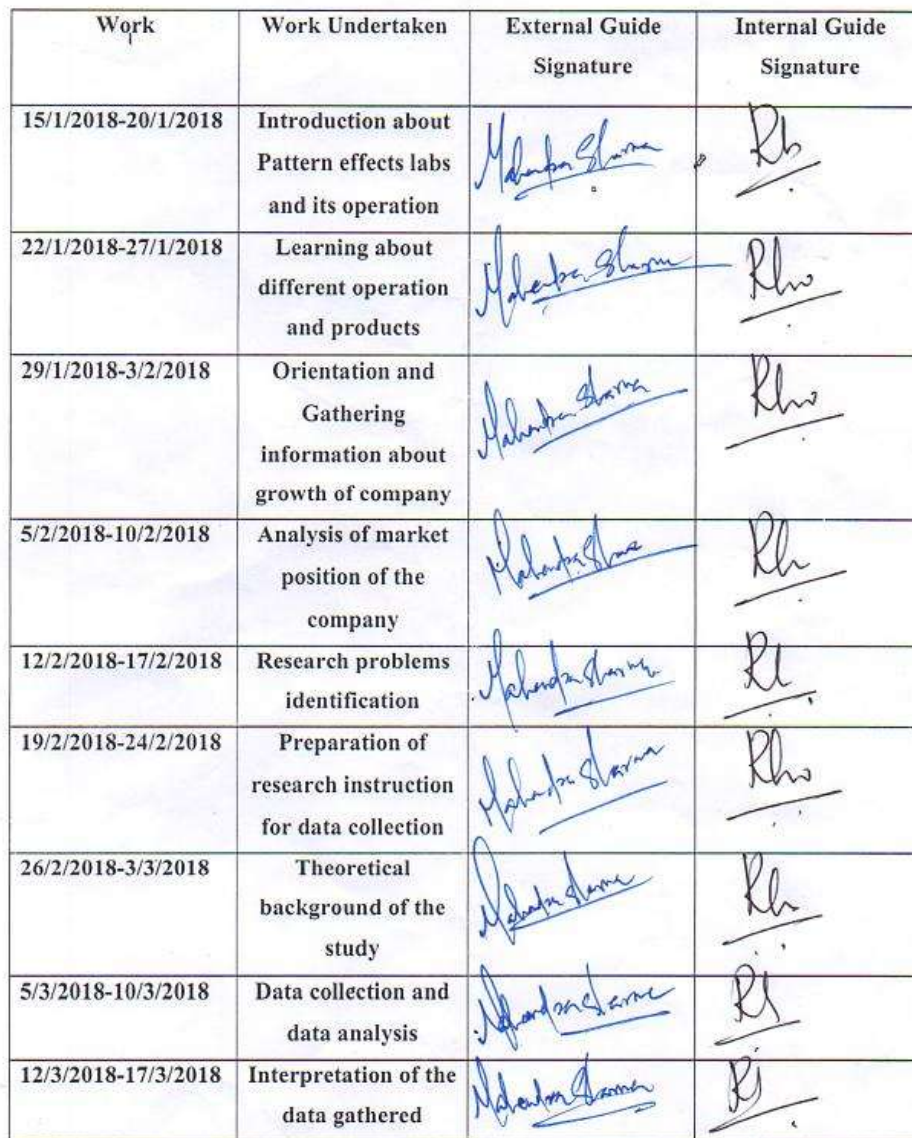 Work Work Undertaken External Guide Internal Guide
Signature Signature
15/1/2018-20/1/2018 Introduction about
Pattern effects labs
and its operation
Mahendra Sharma
22/1/2018-27/1/2018 Learning about
different operation
and products
Mahendra Sharma
29/1/2018-3/2/2018 Orientation and
Gathering
information about
growth of company
Mahendra Sharma
5/2/2018-10/2/2018 Analysis of market
position of the
company
Mahendra Sharma
12/2/2018-17/2/2018 Research problems
identification
Mahendra Sharma
19/2/2018-24/2/2018 Preparation of
research instruction
for data collection
Mahendra Sharma
26/2/2018-3/3/2018 Theoretical
background of the
study
Mahendra Sharma
5/3/2018-10/3/2018 Data collection and
data analysis
Mahendra Sharma
12/3/2018-17/3/2018 Interpretation of the
data gathered
Mahendra Sharma